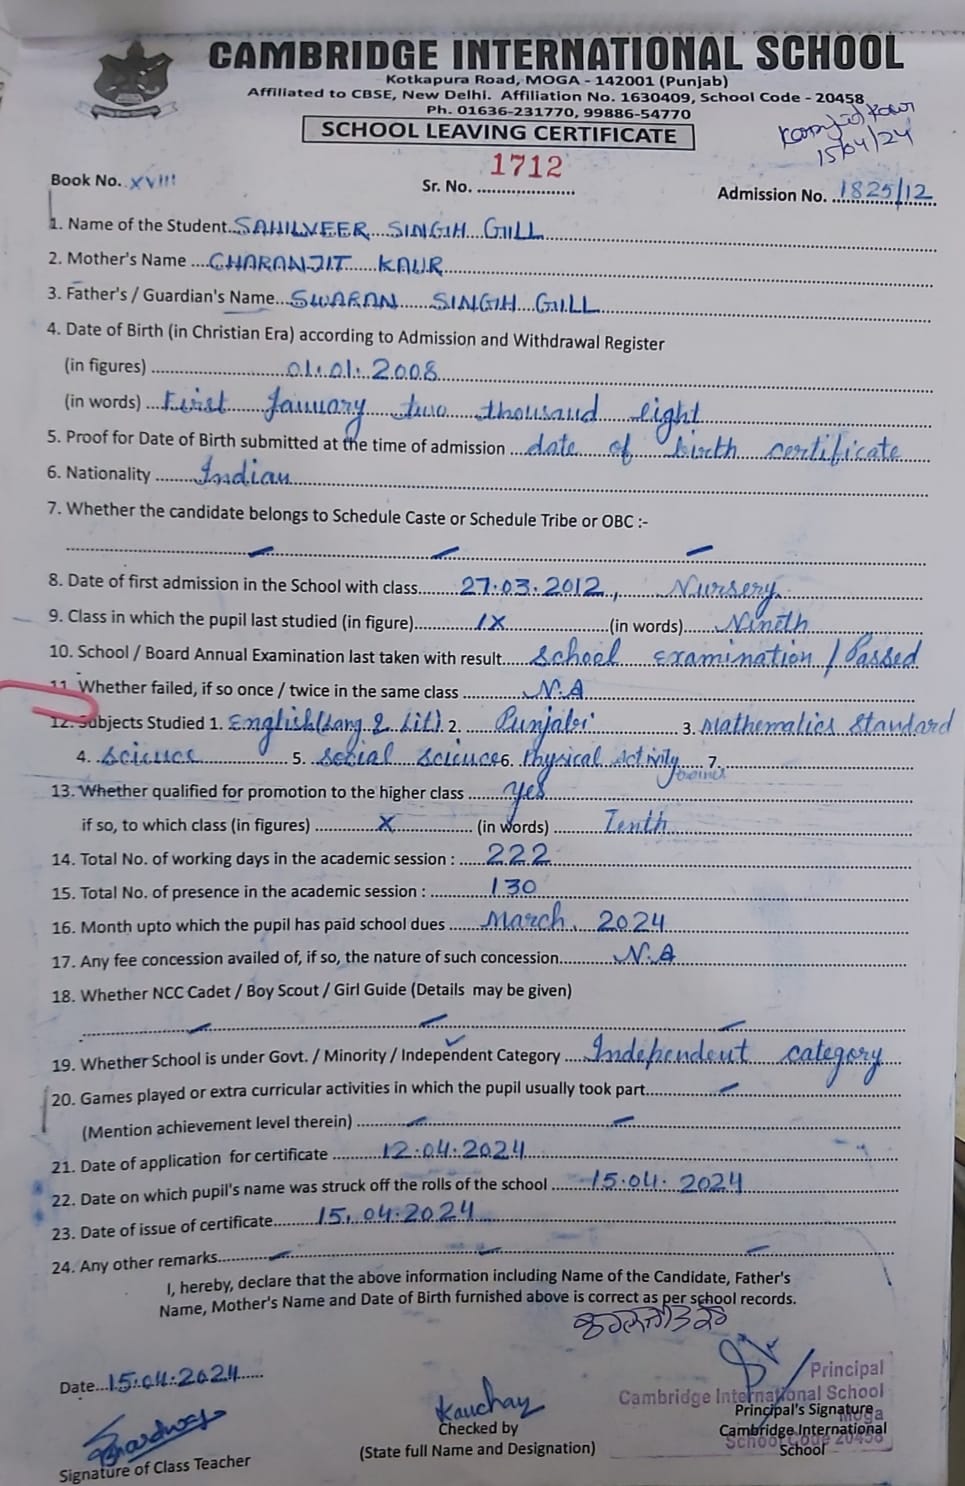 CAMBRIDGE INTERNATIONAL SCHOOL
Kotkapura Road, MOGA - 142001 (Punjab)
Affiliated to CBSE, New Delhi. Affiliation No. 1630409, School Code - 20458
Ph. 01636-231770, 99886-54770
SCHOOL LEAVING CERTIFICATE
15/04/24
1712
Book No. XVIII Sr. No. .................. Admission No. 1825/12
1. Name of the Student SAHILVEER SINGH GILL
2. Mother's Name CHARANJIT KAUR
3. Father's / Guardian's Name SWARAN SINGH GILL
4. Date of Birth (in Christian Era) according to Admission and Withdrawal Register
(in figures) 01.01.2008
(in words) First January two thousand eight
5. Proof for Date of Birth submitted at the time of admission date of birth certificate
6. Nationality Indian
7. Whether the candidate belongs to Schedule Caste or Schedule Tribe or OBC :-
8. Date of first admission in the School with class 27.03.2012, Nursery
9. Class in which the pupil last studied (in figure) IX (in words) Nineth
10. School / Board Annual Examination last taken with result School examination / Passed
11. Whether failed, if so once / twice in the same class N.A
12. Subjects Studied 1. English(Lang & Lit). 2. Punjabi 3. Mathematics Standard
4. Science 5. Social Science 6. Physical Activity 7.
13. Whether qualified for promotion to the higher class Yes
if so, to which class (in figures) X (in words) Tenth
14. Total No. of working days in the academic session : 222
15. Total No. of presence in the academic session : 130
16. Month upto which the pupil has paid school dues March, 2024
17. Any fee concession availed of, if so, the nature of such concession N.A
18. Whether NCC Cadet / Boy Scout / Girl Guide (Details may be given)
19. Whether School is under Govt. / Minority / Independent Category Independent category
20. Games played or extra curricular activities in which the pupil usually took part
(Mention achievement level therein)
21. Date of application for certificate 12.04.2024
22. Date on which pupil's name was struck off the rolls of the school 15.04.2024
23. Date of issue of certificate 15.04.2024
24. Any other remarks
I, hereby, declare that the above information including Name of the Candidate, Father's
Name, Mother's Name and Date of Birth furnished above is correct as per school records.
Date 15.04.2024
Principal
Cambridge International School
Moga
School Code 20458
Signature of Class Teacher
Checked by
(State full Name and Designation)
Principal's Signature
Cambridge International
School